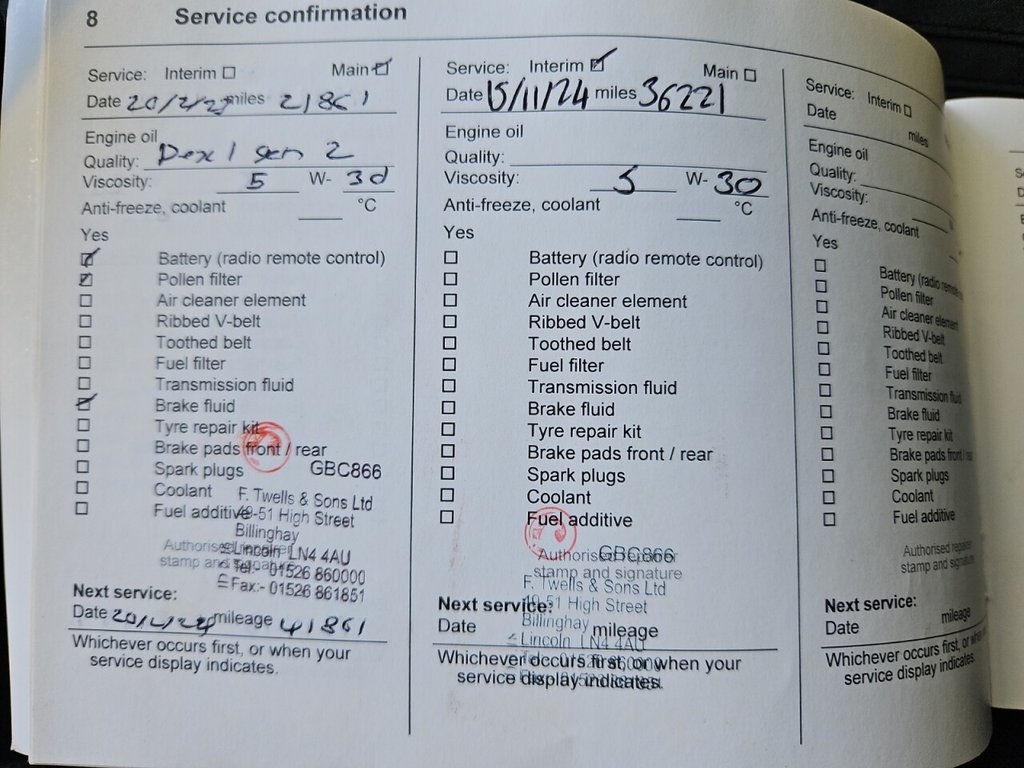 8 Service confirmation
Service: Interim Main
Date miles 21861
Engine oil
Quality: Dex 1 gen 2
Viscosity: 5 W- 30
Anti-freeze, coolant °C
Yes
Battery (radio remote control)
Pollen filter
Air cleaner element
Ribbed V-belt
Toothed belt
Fuel filter
Transmission fluid
Brake fluid
Tyre repair kit
Brake pads front / rear
Spark plugs GBC866
Coolant
Fuel additive
F. Twells & Sons Ltd
49-51 High Street
Billinghay
Lincoln LN4 4AU
Tel:- 01526 860000
Fax:- 01526 861851
Authorised repairer
stamp and signature
Next service:
Date mileage 41861
Whichever occurs first, or when your
service display indicates.
Service: Interim Main
Date 15/11/24 miles 36221
Engine oil
Quality:
Viscosity: 5 W- 30
Anti-freeze, coolant °C
Yes
Battery (radio remote control)
Pollen filter
Air cleaner element
Ribbed V-belt
Toothed belt
Fuel filter
Transmission fluid
Brake fluid
Tyre repair kit
Brake pads front / rear
Spark plugs
Coolant
Fuel additive
GBC866
Authorised repairer
stamp and signature
F. Twells & Sons Ltd
49-51 High Street
Billinghay
Lincoln LN4 4AU
Next service:
Date mileage
Whichever occurs first, or when your
service display indicates.
Service: Interim
Date miles
Engine oil
Quality:
Viscosity:
Anti-freeze, coolant
Yes
Battery (radio remote
Pollen filter
Air cleaner element
Ribbed V-belt
Toothed belt
Fuel filter
Transmission fluid
Brake fluid
Tyre repair kit
Brake pads front /
Spark plugs
Coolant
Fuel additive
Authorised repairer
stamp and signature
Next service:
Date mileage
Whichever occurs first, or when
service display indicates.